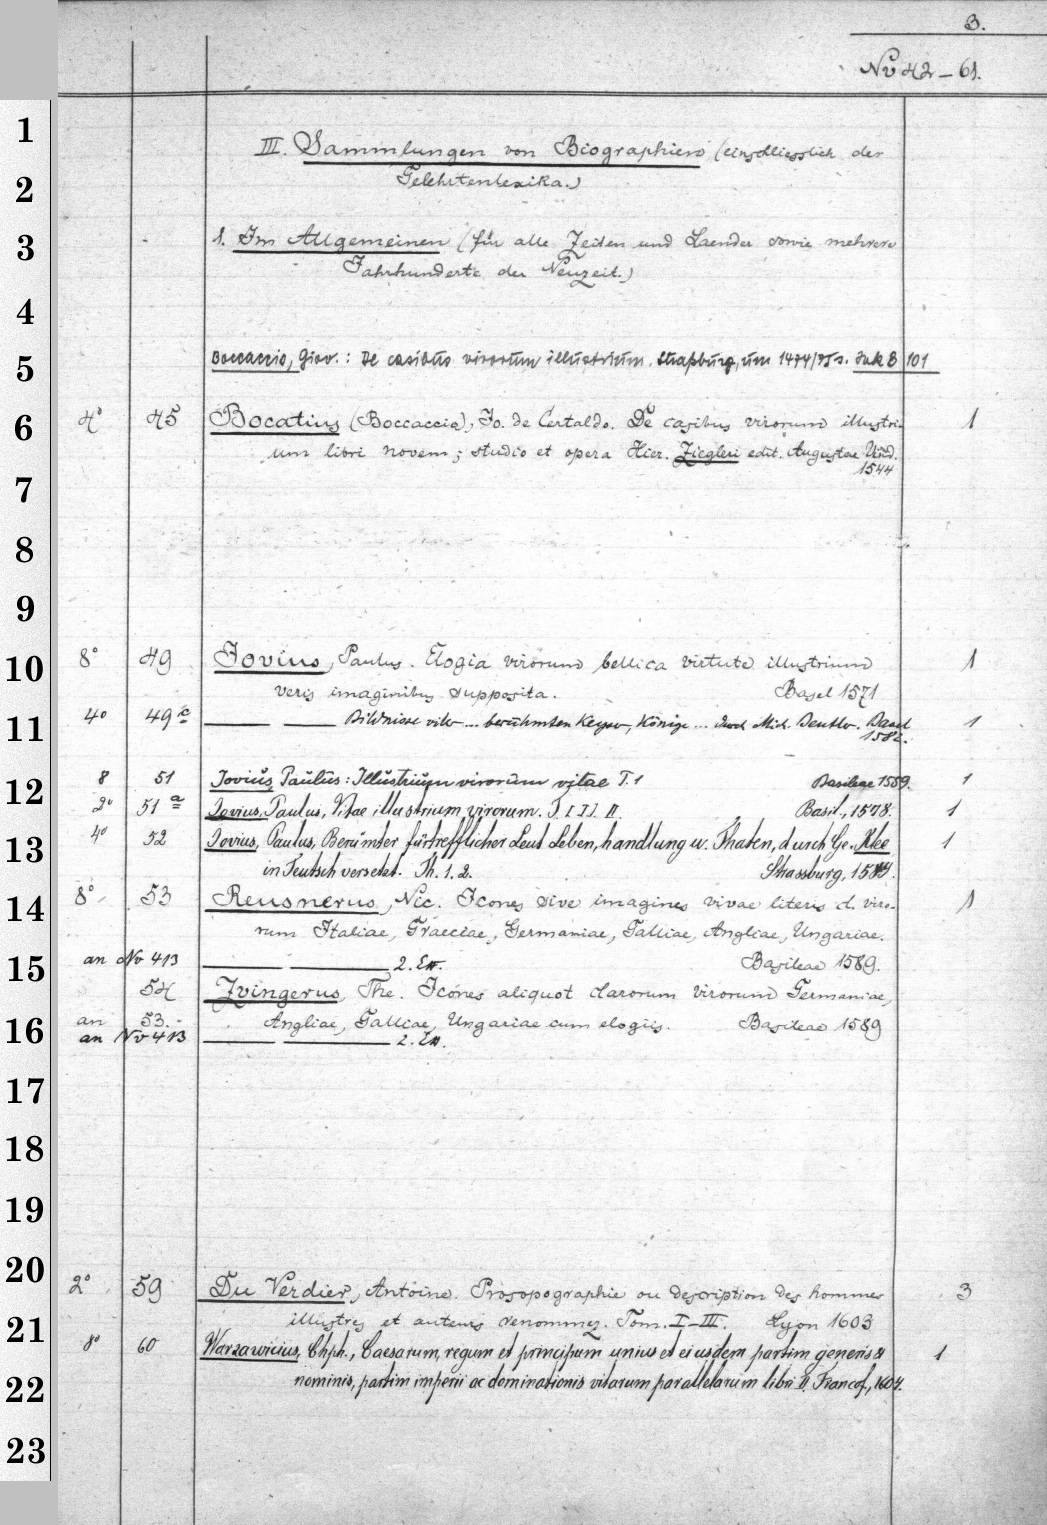 3.
No 42 – 61.
III. Sammlungen von Biographien (einschliesslich der
Gelehrtenlexika.)
1. Im Allgemeinen (für alle Zeiten und Laender sowie mehrere
Jahrhunderte der Neuzeit.)
Boccaccio, Giov.: De casibus virorum illustrium. Straßburg, um 1474/75 s. Ink B 101
4° 45 Bocatius (Boccaccio), Jo. de Certaldo. De casibus virorum illustri- 1
um libri novem; studio et opera Hier. Ziegleri edit. Augustae Vind.
1544
8° 49 Jovius, Paulus. Elogia virorum bellica virtute illustrium 1
veris imaginibus supposita. Basel 1571
4° 49c Bildnisse viler ... berühmten Keyser, Könige ... durch Mich. Beuther. Basel 1
1582.
8 51 Jovius, Paulus: Illustrium virorum vitae T.1 Basileae 1559. 1
2° 51a Jovius, Paulus, Vitae illustrium virorum. T. I II. Basil., 1578. 1
4° 52 Jovius, Paulus, Berümter fürtrefflicher Leut Leben, handlung u. Thaten, durch Ge. Klee 1
in Teutsch versetzt. Th. 1. 2. Strassburg, 1589.
8° 53 Reusnerus, Nic. Icones sive imagines vivae literis cl. viro- 1
rum Italiae, Graeciae, Germaniae, Galliae, Angliae, Ungariae.
an No 413 2. Ex. Basileae 1589.
54 Zvingerus, The. Icones aliquot clarorum virorum Germaniae,
an 53. Angliae, Galliae, Ungariae cum elogiis. Basileae 1589
an No 413 2. Ex.
2° 59 Du Verdier, Antoine. Prosopographie ou description des hommes 3
illustres et auteurs renommez. Tom. I–III. Lyon 1603
8° 60 Warzawicius, Chph., Caesarum, regum et principum unius et eiusdem partim generis & 1
nominis, partim imperii ac dominationis vitarum parallelarum libri II. Francof., 1604.
1
2
3
4
5
6
7
8
9
10
11
12
13
14
15
16
17
18
19
20
21
22
23